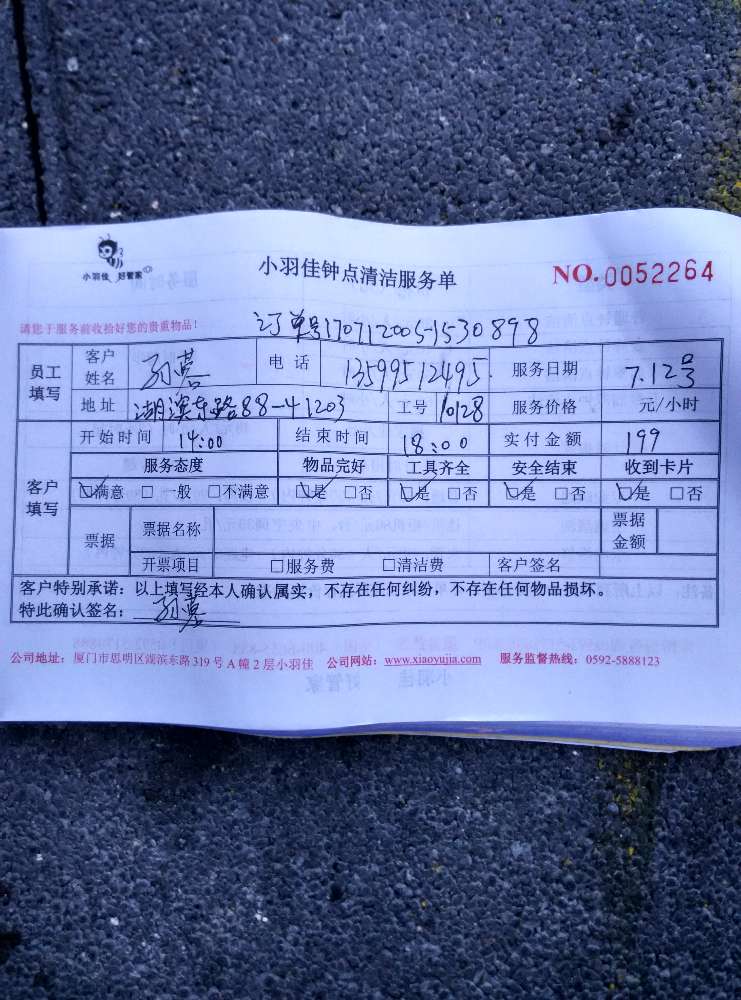 小羽佳 好管家
小羽佳钟点清洁服务单
NO.0052264
请您于服务前收拾好您的贵重物品！
订单号170712005-1530898
员工填写 客户姓名 孙 电话 13599512495 服务日期 7.12号
地址 湖滨东路88-41203 工号 10128 服务价格 元/小时
客户填写 开始时间 14:00 结束时间 18:00 实付金额 199
服务态度 物品完好 工具齐全 安全结束 收到卡片
☑满意 □一般 □不满意 ☑是 □否 ☑是 □否 ☑是 □否 ☑是 □否
票据 票据名称 票据金额
开票项目 □服务费 □清洁费 客户签名
客户特别承诺：以上填写经本人确认属实，不存在任何纠纷，不存在任何物品损坏。
特此确认签名：孙
公司地址：厦门市思明区湖滨东路319号A幢2层小羽佳 公司网站：www.xiaoyujia.com 服务监督热线：0592-5888123